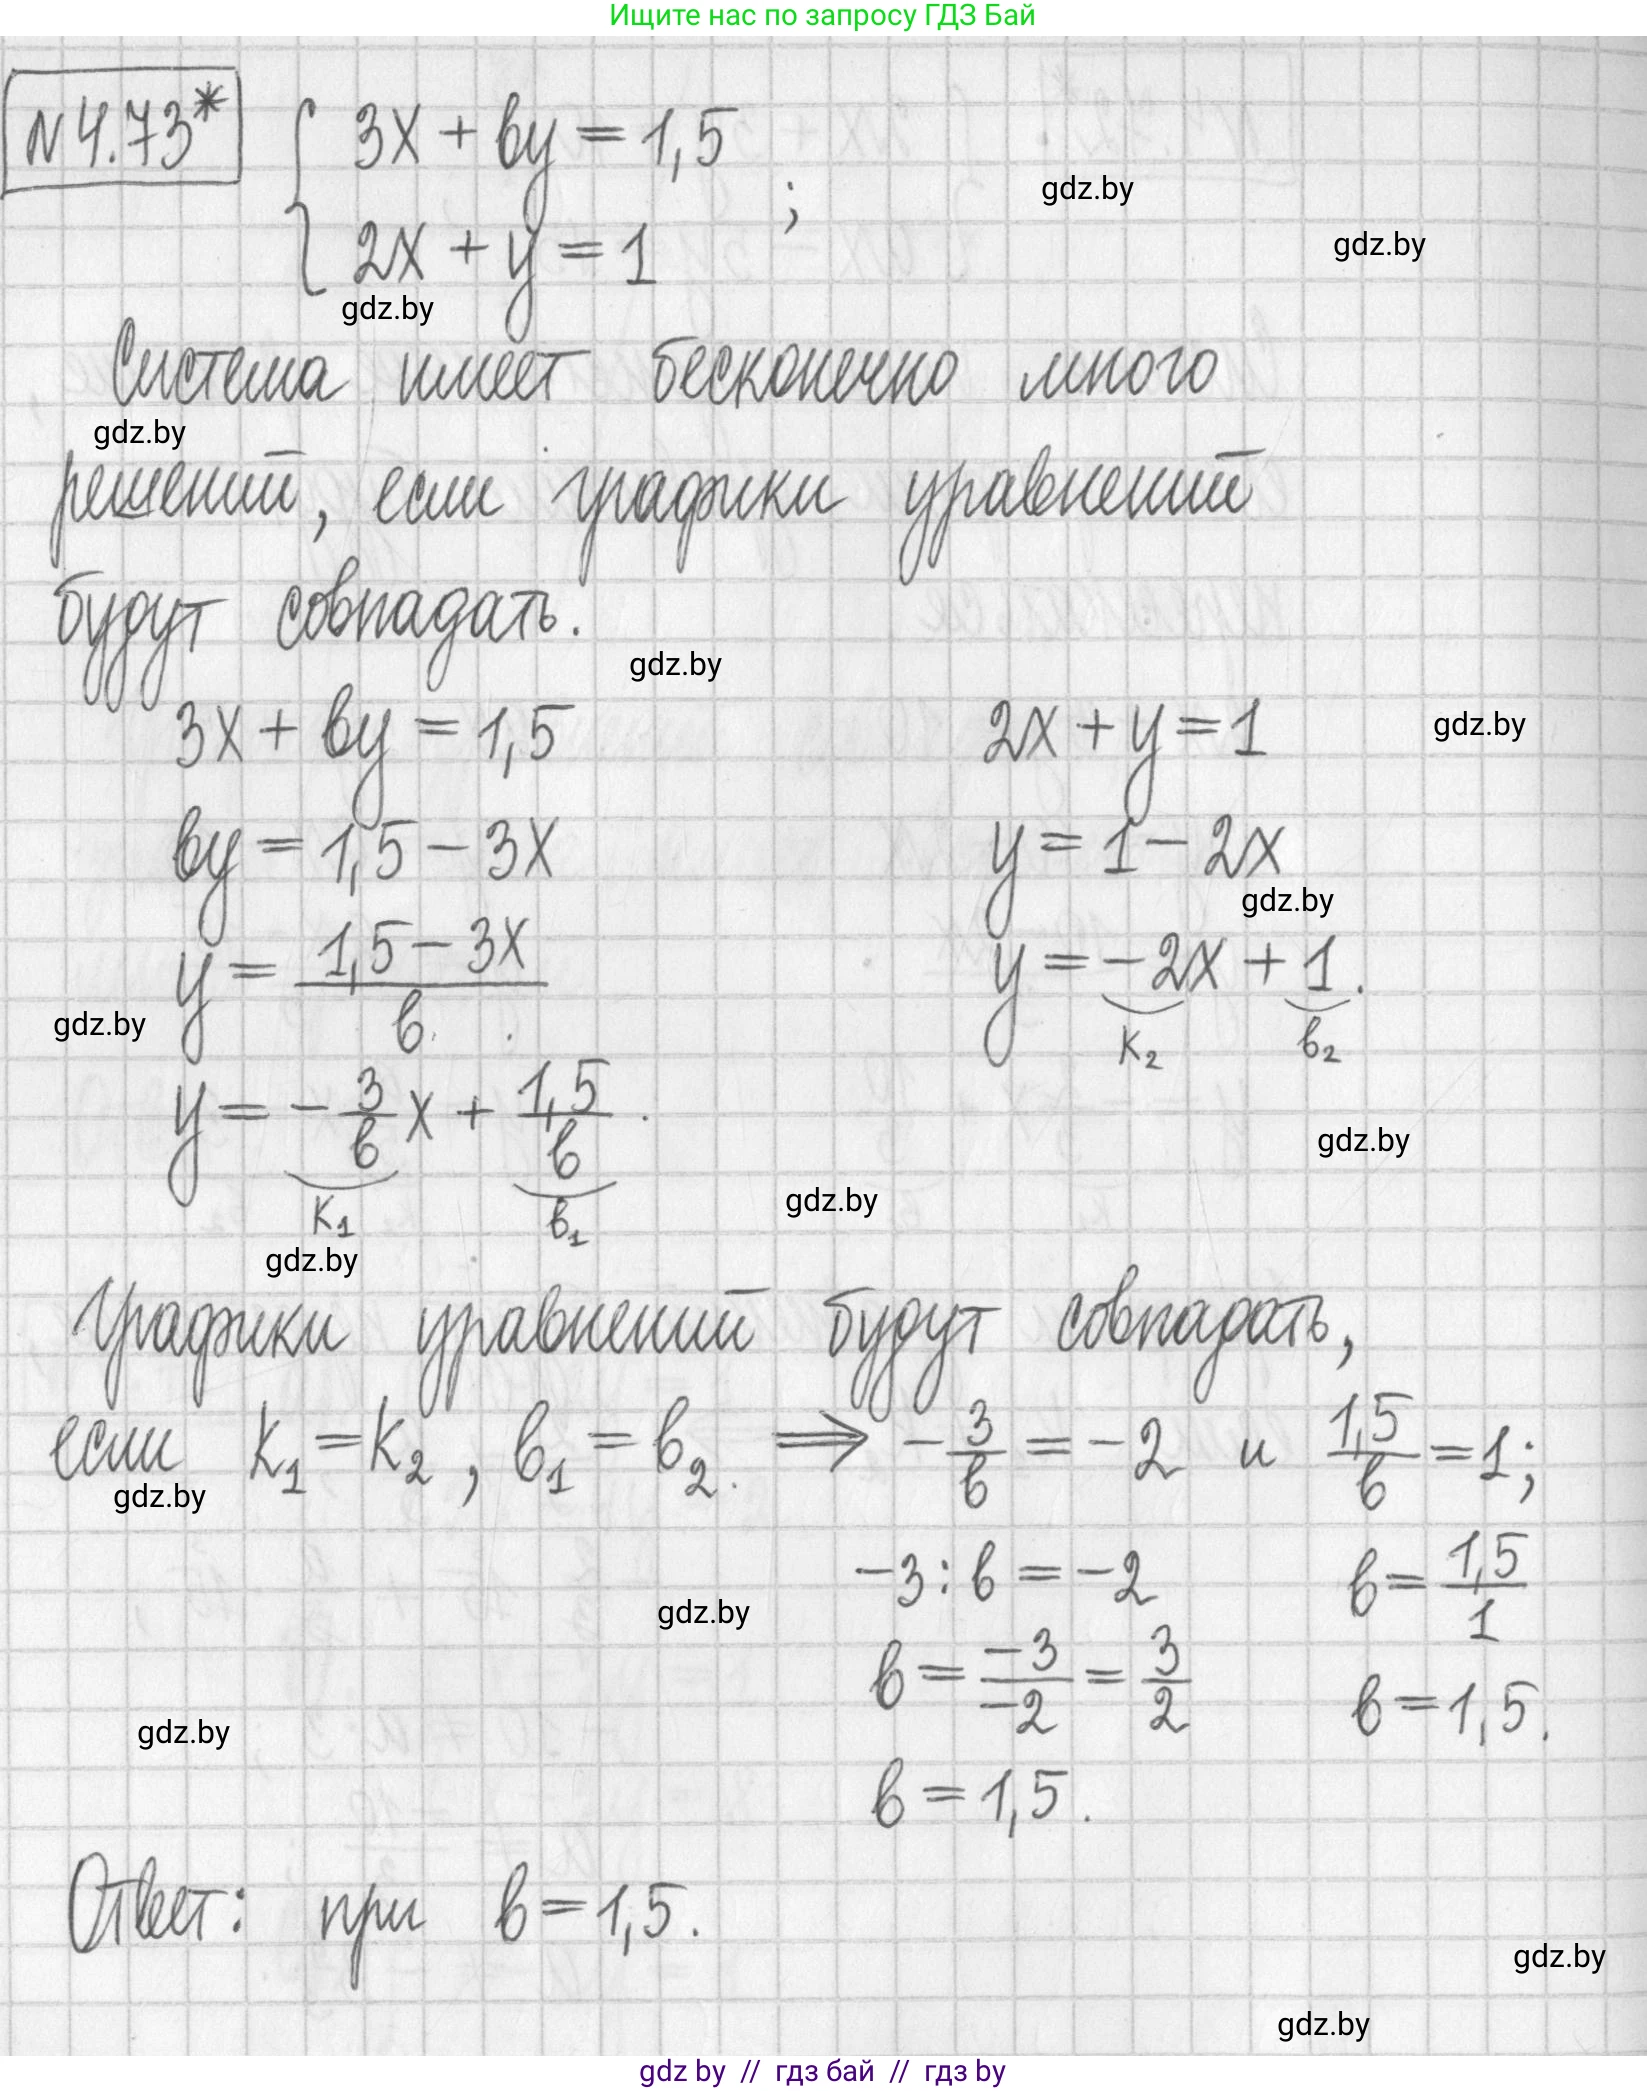 Ищите нас по запросу ГДЗ Бай
N4.73*
{ 3x + by = 1,5
2x + y = 1 ;
gdz.by
gdz.by
gdz.by
Система имеет бесконечно много
gdz.by
решений, если графики уравнений
будут совпадать.
gdz.by
3x + by = 1,5
2x + y = 1
gdz.by
by = 1,5 - 3x
y = 1 - 2x
gdz.by
y = (1,5 - 3x)/b
y = -2x + 1.
k2 b2
gdz.by
y = -3/b x + 1,5/b.
k1 b1
gdz.by
gdz.by
gdz.by
Графики уравнений будут совпадать,
если k1 = k2, b1 = b2. ⇒ -3/b = -2 и 1,5/b = 1;
gdz.by
-3 : b = -2
b = 1,5/1
gdz.by
b = -3/-2 = 3/2
b = 1,5.
gdz.by
b = 1,5.
Ответ: при b = 1,5.
gdz.by
gdz.by
gdz by // гдз бай // гдз by